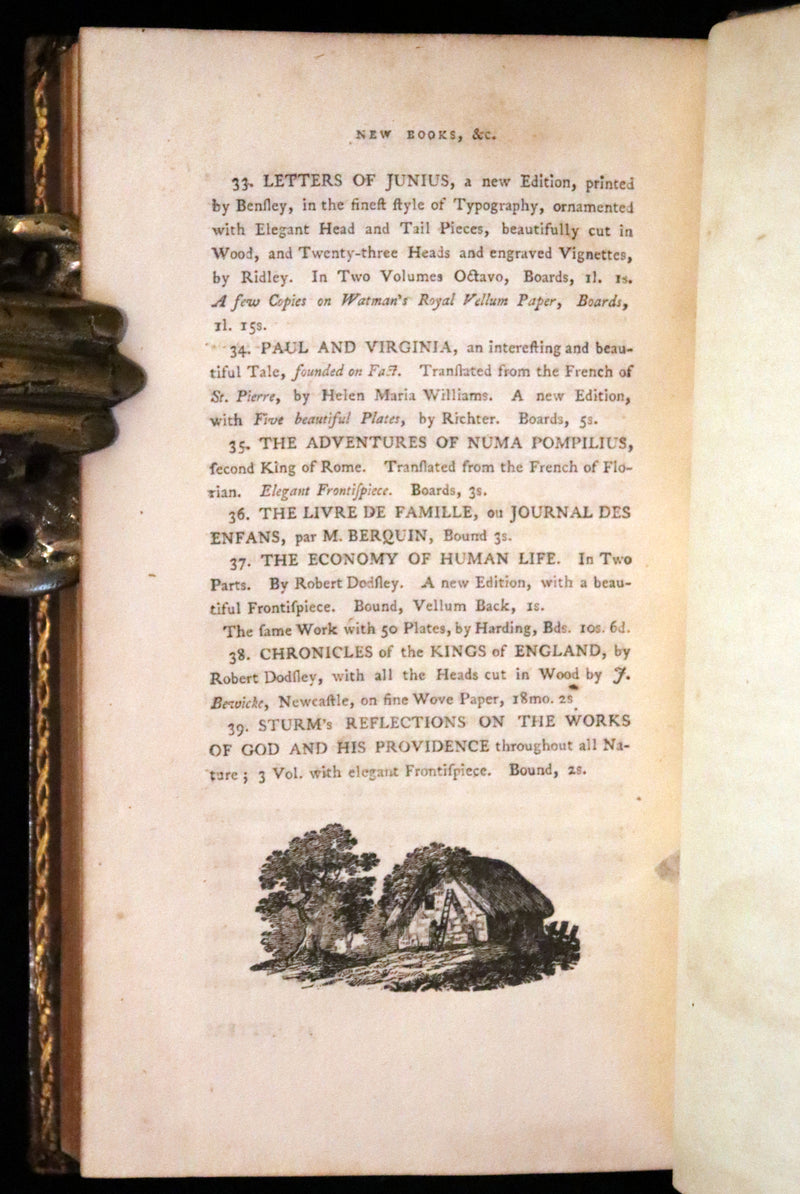 NEW BOOKS, &c.
33. LETTERS OF JUNIUS, a new Edition, printed
by Benſley, in the fineſt ſtyle of Typography, ornamented
with Elegant Head and Tail Pieces, beautifully cut in
Wood, and Twenty-three Heads and engraved Vignettes,
by Ridley. In Two Volumes Octavo, Boards, 1l. 1s.
A few Copies on Watman's Royal Vellum Paper, Boards,
1l. 15s.
34. PAUL AND VIRGINIA, an intereſting and beau-
tiful Tale, founded on Fact. Tranſlated from the French of
St. Pierre, by Helen Maria Williams. A new Edition,
with Five beautiful Plates, by Richter. Boards, 5s.
35. THE ADVENTURES OF NUMA POMPILIUS,
ſecond King of Rome. Tranſlated from the French of Flo-
rian. Elegant Frontiſpiece. Boards, 3s.
36. THE LIVRE DE FAMILLE, ou JOURNAL DES
ENFANS, par M. BERQUIN, Bound 3s.
37. THE ECONOMY OF HUMAN LIFE. In Two
Parts. By Robert Dodſley. A new Edition, with a beau-
tiful Frontiſpiece. Bound, Vellum Back, 1s.
The ſame Work with 50 Plates, by Harding, Bds. 10s. 6d.
38. CHRONICLES of the KINGS of ENGLAND, by
Robert Dodſley, with all the Heads cut in Wood by J.
Bewicke, Newcaſtle, on fine Wove Paper, 18mo. 2s.
39. STURM's REFLECTIONS ON THE WORKS
OF GOD AND HIS PROVIDENCE throughout all Na-
ture; 3 Vol. with elegant Frontiſpiece. Bound, 2s.